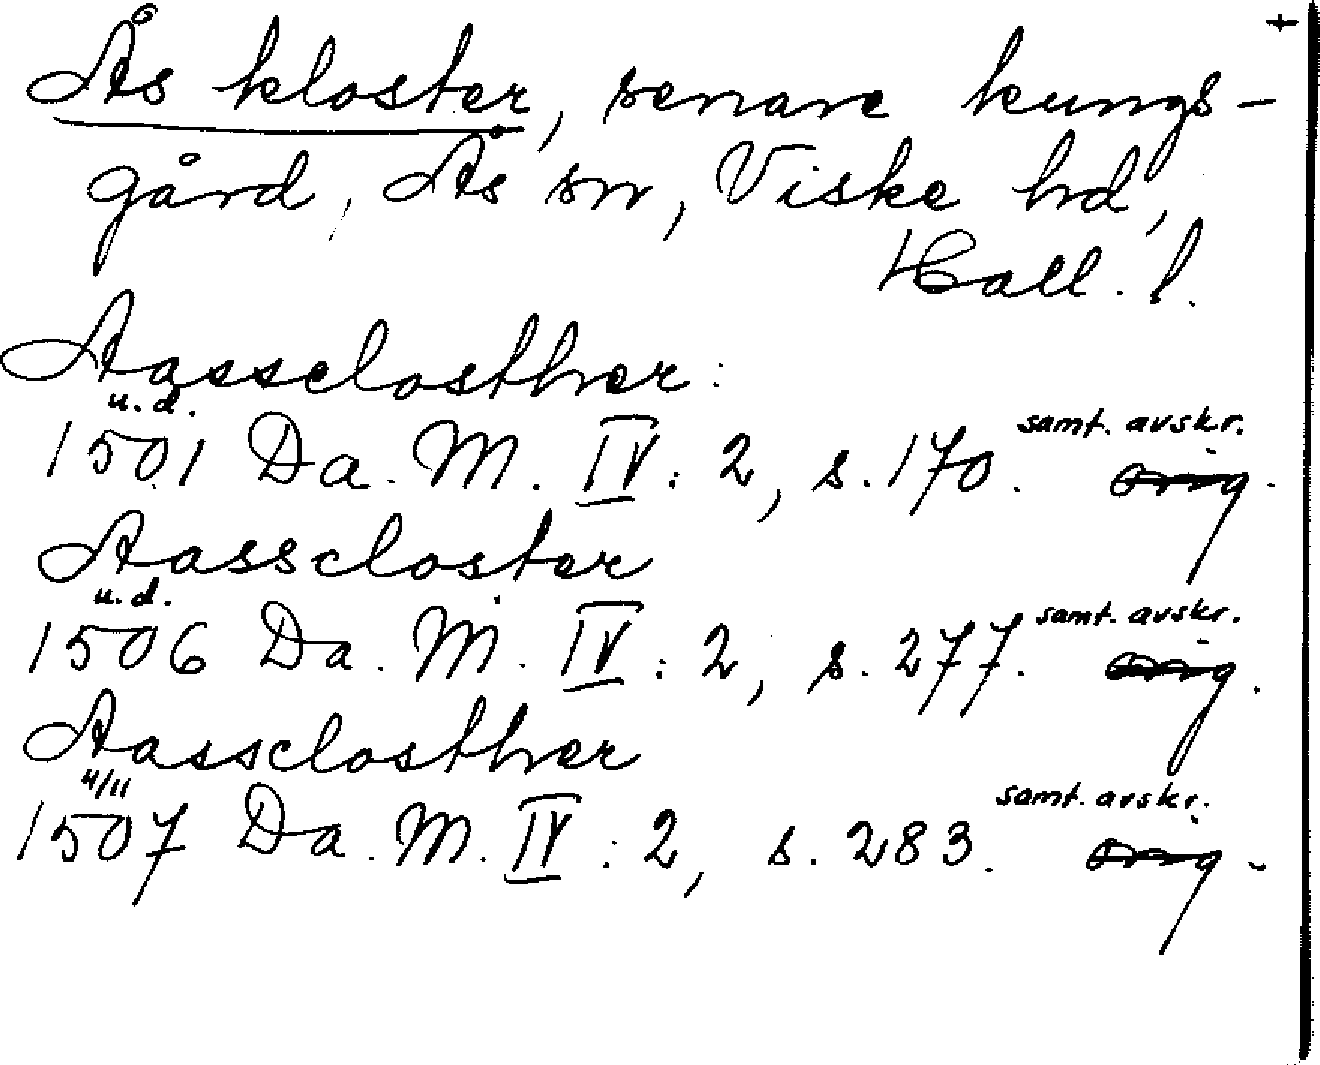 +
Ås kloster, senare kungs-
gård, Ås sn, Viske hd,
Hall. l.
Aassclosther:
u. d.
1501 Da. M. IV: 2, s. 170. samt. avskr. orig.
Aasscloster
u. d.
1506 Da. M. IV: 2, s. 277. samt. avskr. orig.
Aassclosther
4/11
1507 Da. M. IV: 2, s. 283. samt. avskr. orig.